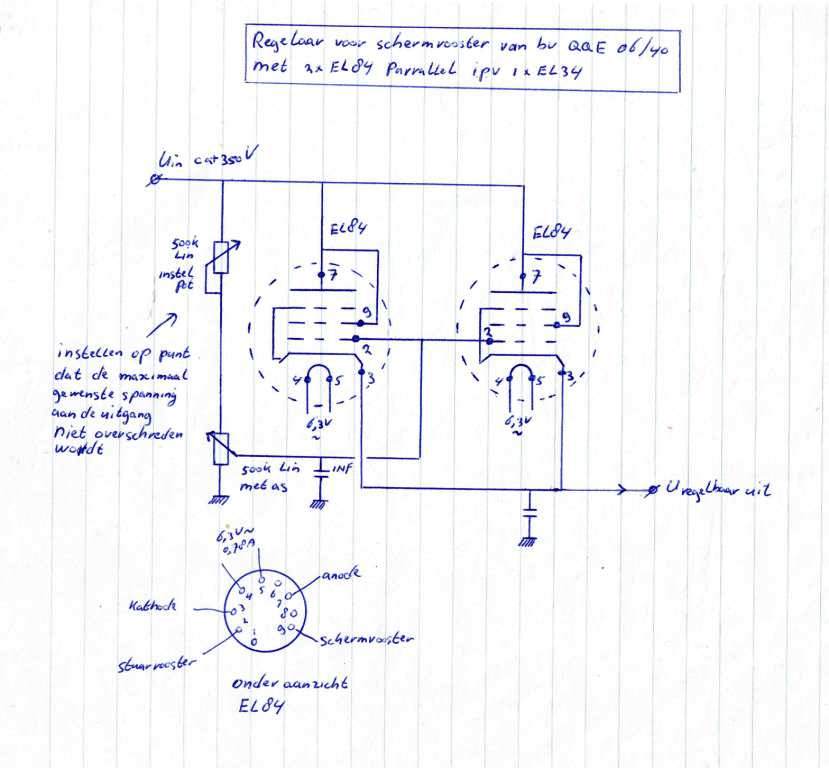 Regelaar voor schermrooster van bv QQE 06/40
met 2x EL84 Parrallel ipv 1x EL34
Uin ca+350V
EL84
EL84
500k
Lin
instel
pot
7
9
2
3
4
5
6,3V
~
7
9
2
3
4
5
6,3V
~
instellen op punt
dat de maximaal
gewenste spanning
aan de uitgang
Niet overschreden
wordt
500k Lin
met as
1NF
U regelbaar uit
6,3V~
0,78A
anode
Kathode
schermrooster
stuurrooster
1
2
3
4
5
6
7
8
9
onder aanzicht
EL84